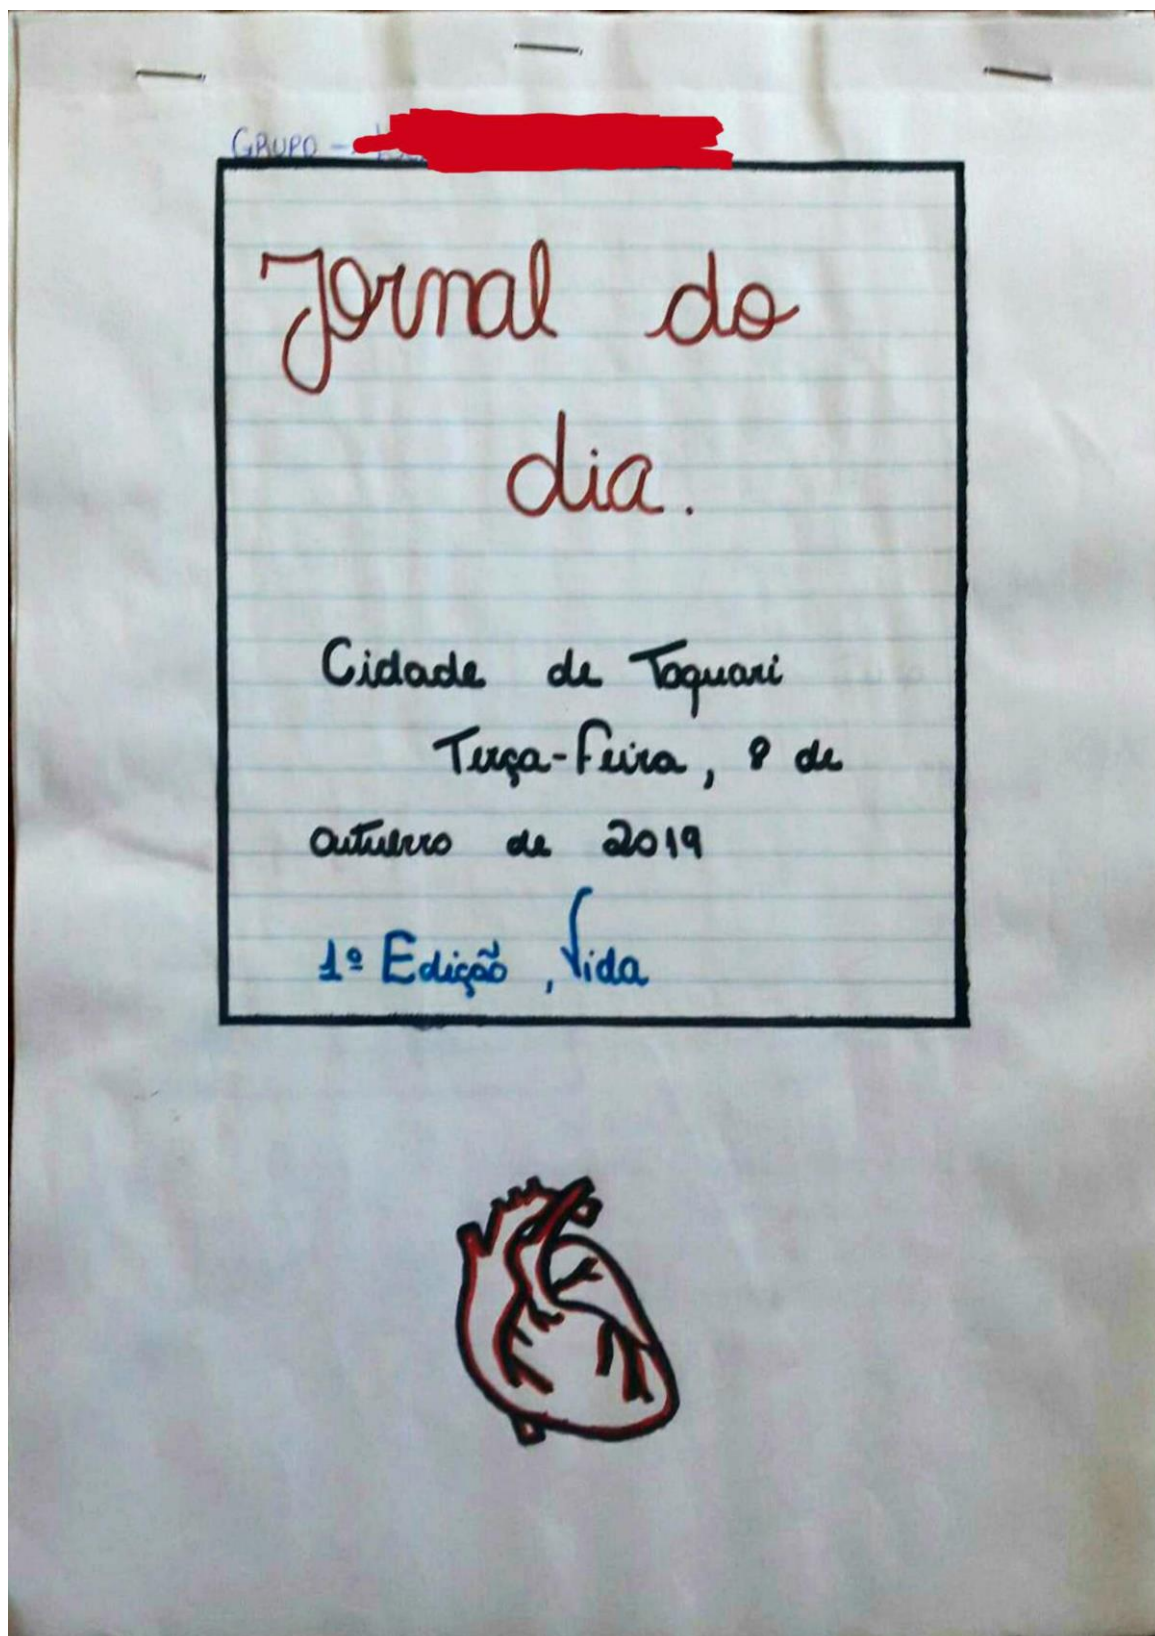 GRUPO -
Jornal do
dia.
Cidade de Taquari
Terça-Feira, 8 de
outubro de 2019
1º Edição, Vida